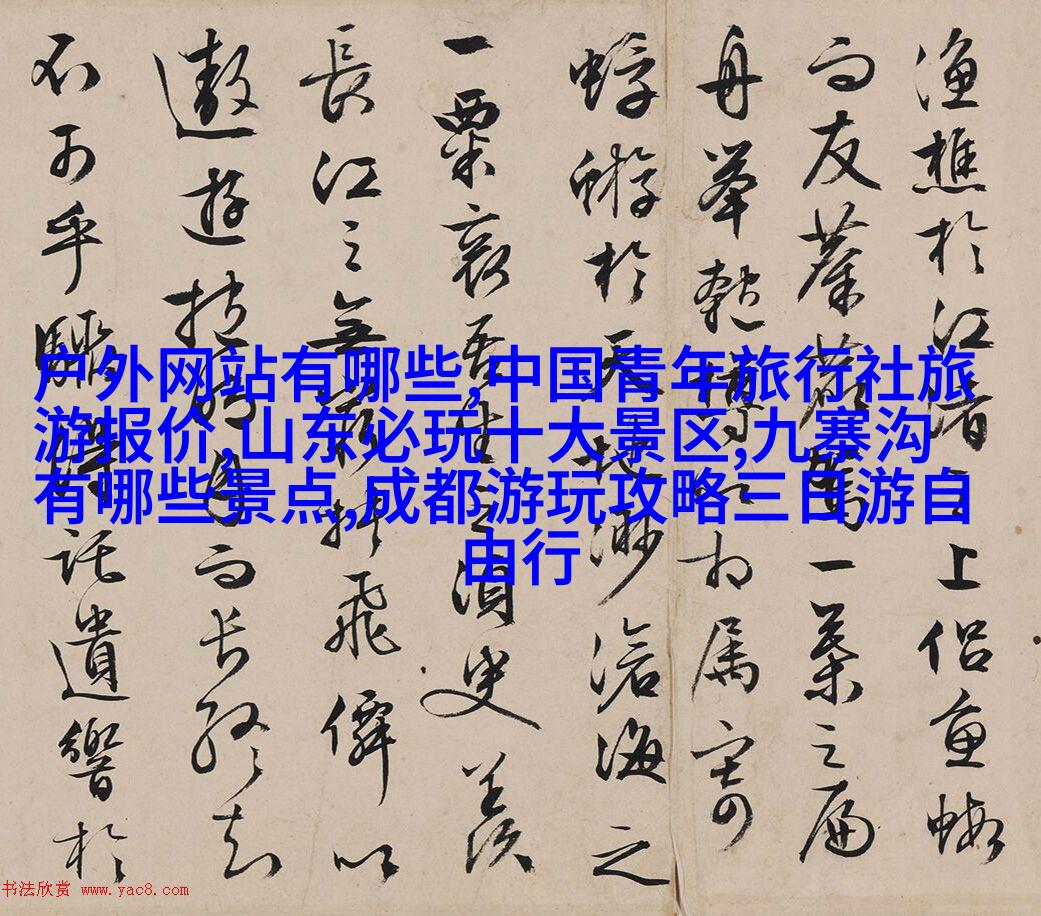 渔樵於江渚之上侣魚蝦
而友麋鹿駕一葉之扁
舟舉匏樽以相属寄
蜉蝣於天地渺滄海之
一粟哀吾生之須臾羡
長江之無窮挾飛僊以
遨遊抱明月而長終知
不可乎驟得託遺響於
户外网站有哪些,中国青年旅行社旅
游报价,山东必玩十大景区,九寨沟
有哪些景点,成都游玩攻略三日游自
由行
书法欣赏 www.yac8.com